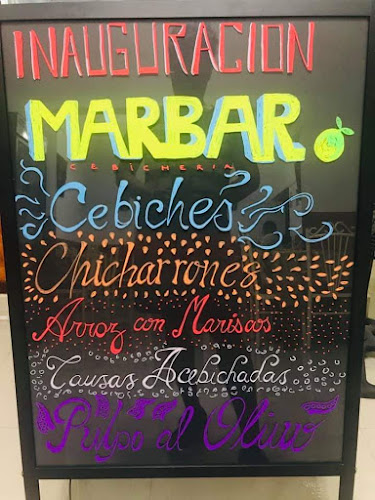 INAUGURACION
MARBAR
CEBICHERIA
Cebiches
Chicharrones
Arroz con Mariscos
Causas Acebichadas
Pulpo al Olivo